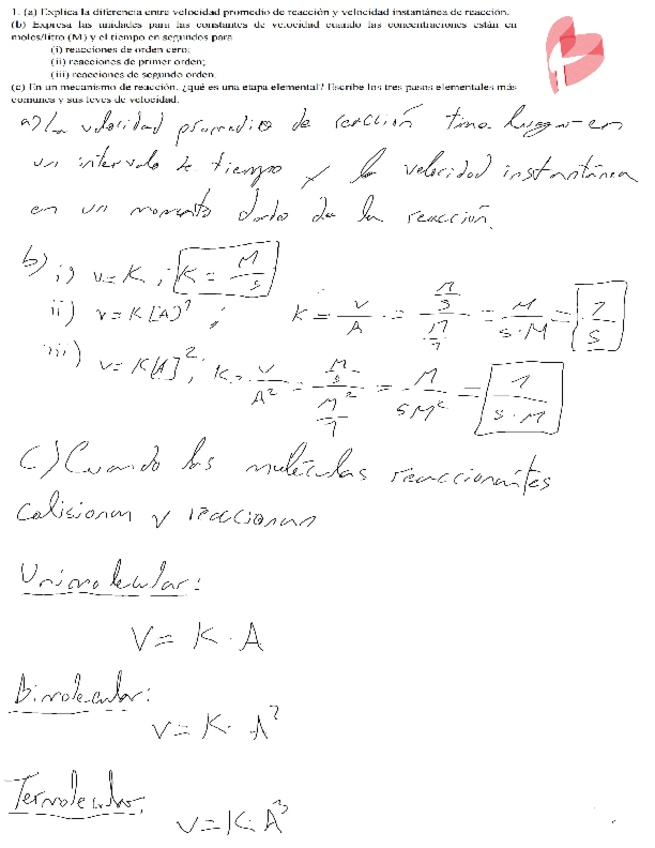 1. (a) Explica la diferencia entre velocidad promedio de reacción y velocidad instantánea de reacción.
(b) Expresa las unidades para las constantes de velocidad cuando las concentraciones están en
moles/litro (M) y el tiempo en segundos para
(i) reacciones de orden cero;
(ii) reacciones de primer orden;
(iii) reacciones de segundo orden.
(c) En un mecanismo de reacción, ¿qué es una etapa elemental? Escribe los tres pasos elementales más
comunes y sus leyes de velocidad.
a) La velocidad promedio de reacción tiene lugar en
un intervalo de tiempo y la velocidad instantánea
en un momento dado de la reacción.
b) i) v=K ; K = M/s
ii) v=K[A]^1 ; K = v/A = (M/s)/(M/1) = M/(s·M) = 1/s
iii) v=K[A]^2 ; K = v/A^2 = (M/s)/(M^2/1) = M/(sM^2) = 1/(s·M)
c) Cuando las moléculas reaccionantes
colisionan y reaccionan
Unimolecular:
V = K · A
Bimolecular:
V = K · A^2
Termolecular:
V = K · A^3